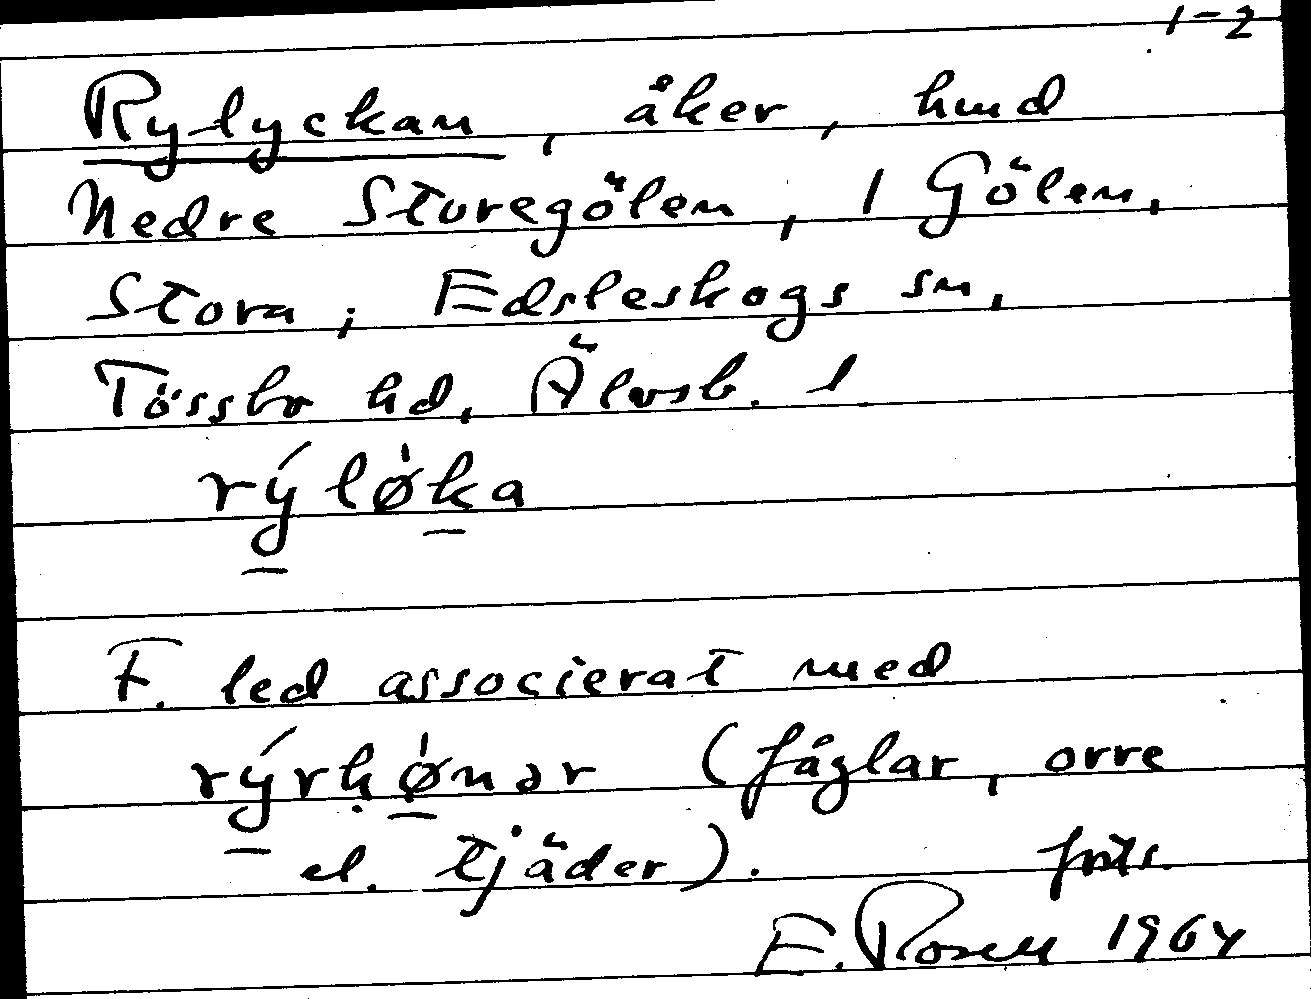 1-2
Rylyckan, åker, hmd
Nedre Storegölen, 1 Gölen,
Stora, Edsleskogs sn,
Tössbo hd, Älvsb. l.
rýlø̍ka
F. led associerat med
rýrhø̍nər (fåglar, orre
el. tjäder). forts.
E. Rosell 1964